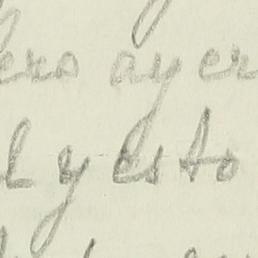 ero ayer
l y esto